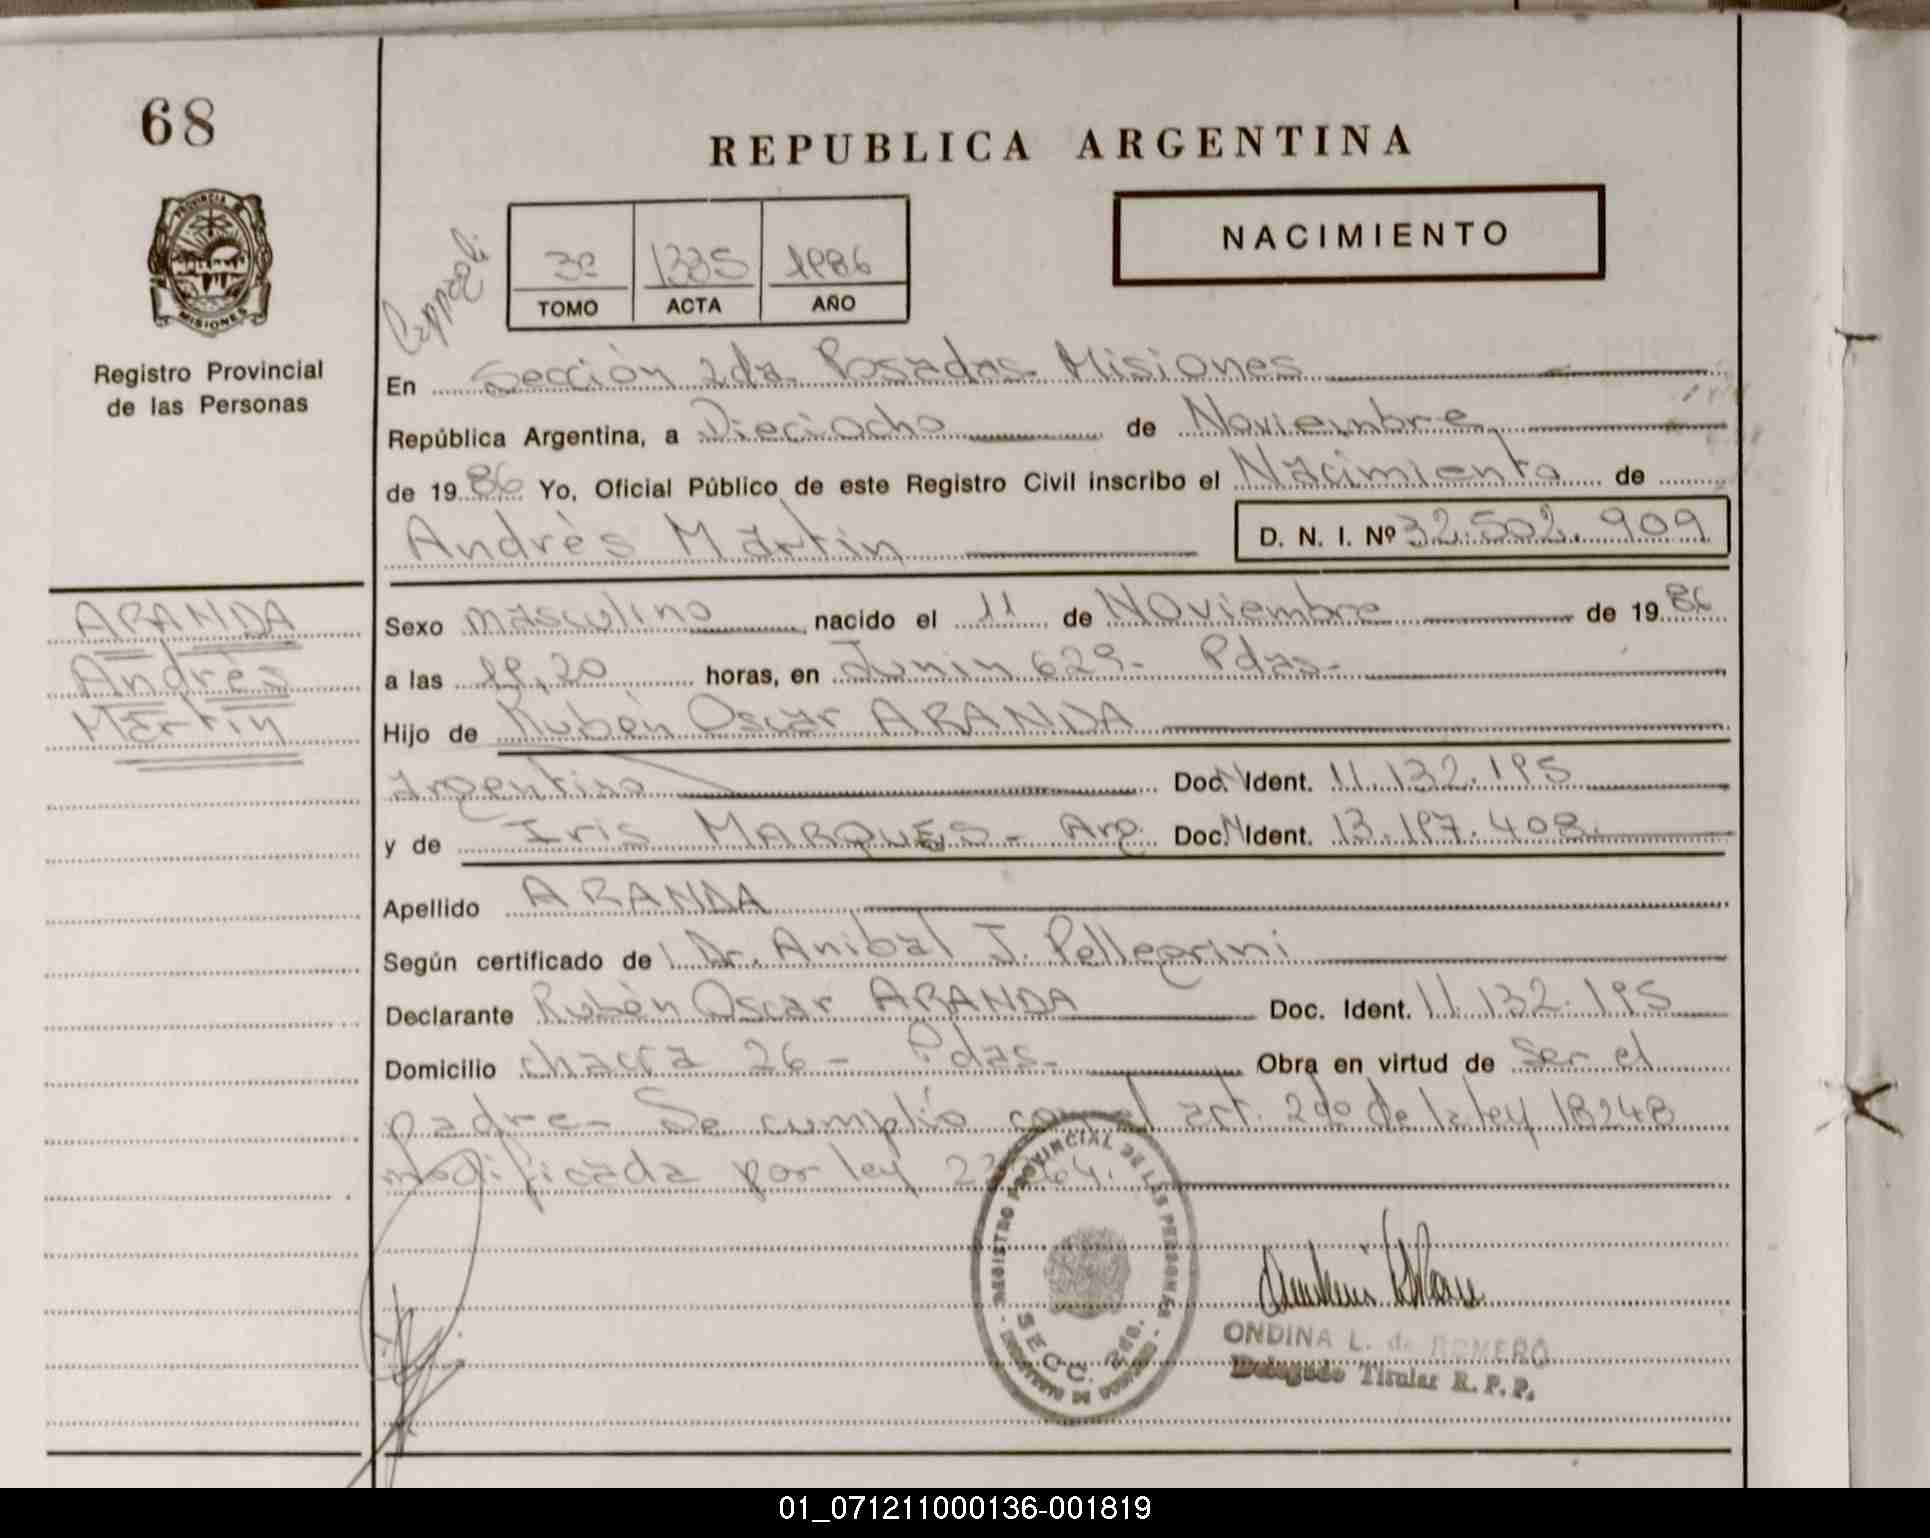 68
REPUBLICA ARGENTINA
PROVINCIA DE
MISIONES
Registro Provincial
de las Personas
3º 1335 1986
TOMO ACTA AÑO
NACIMIENTO
En Sección 2da. Posadas Misiones
República Argentina, a Dieciocho de Noviembre
de 1986 Yo, Oficial Público de este Registro Civil inscribo el Nacimiento de
Andrès Martín D. N. I. Nº 32.502.909
ARANDA
Andrès
Martín
Sexo masculino nacido el 11 de Noviembre de 1986
a las 19,20 horas, en Junin 629- Pdas-
Hijo de Rubén Oscar ARANDA
argentino Doc.N Ident. 11.132.195
y de Iris MARQUES- Arg. Doc.N Ident. 13.197.408.
Apellido ARANDA
Según certificado de Dr. Anibal J. Pellegrini
Declarante Rubén Oscar ARANDA Doc. Ident. 11.132.195
Domicilio chacra 26 - Pdas- Obra en virtud de ser el
padre- Se cumplió con el art. 2do de la ley 18248
modificada por ley
REGISTRO PROVINCIAL DE LAS PERSONAS
SECC. 2da.
ONDINA L. de ROMERO
Delegado Titular R. P. P.
01_071211000136-001819